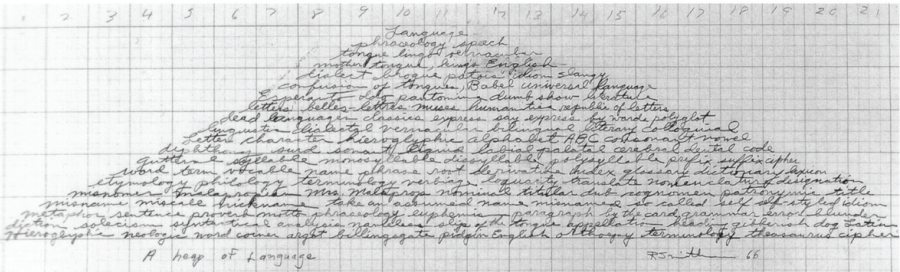 1 2 3 4 5 6 7 8 9 10 11 12 13 14 15 16 17 18 19 20 21
Language
phraseology speech
tongue lingo vernacular
mother tongue, king's English
dialect brogue patois idiom slangy
confusion of tongues, Babel universal language
Esperanto Ido pantomime dumb show literature
letters belles-lettres muses humanities republic of letters
dead languages classics express say express by words polyglot
linguistic dialectal vernacular bilingual literary colloquial
Letter character hieroglyphic alphabet ABC consonant vowel
diphthong surd sonant liquid labial palatal cerebral dental code
guttural syllable monosyllable dissyllable polysyllable prefix suffix cipher
word term vocable name phrase root derivative index glossary dictionary lexicon
etymology philology terminology verbiage loquacity translate nomenclature designation
misnomer malapropism Mrs. Malaprop nominal titular dub cognomen patronymic title
misname miscall nickname take an assumed name misnamed so called self self-styled idiom
metaphor sentence proverb motto phraseology euphemism paragraph by the card grammar error blunder
solecism syntactical analysis nameless slip of the tongue appellation gibberish dog Latin
Hieroglyphic neologic word coiner argot billingsgate pidgin English orthoepy terminology thesaurus cipher
A heap of Language
RSmithson 66